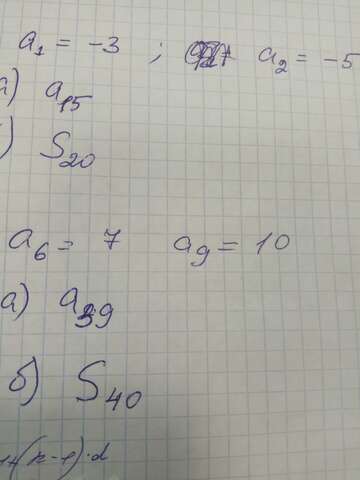 a₁ = -3 ; a₂ = -5
а) a₁₅
) S₂₀
a₆ = 7 a₉ = 10
а) a₃₉
б) S₄₀
+(n-1)·d